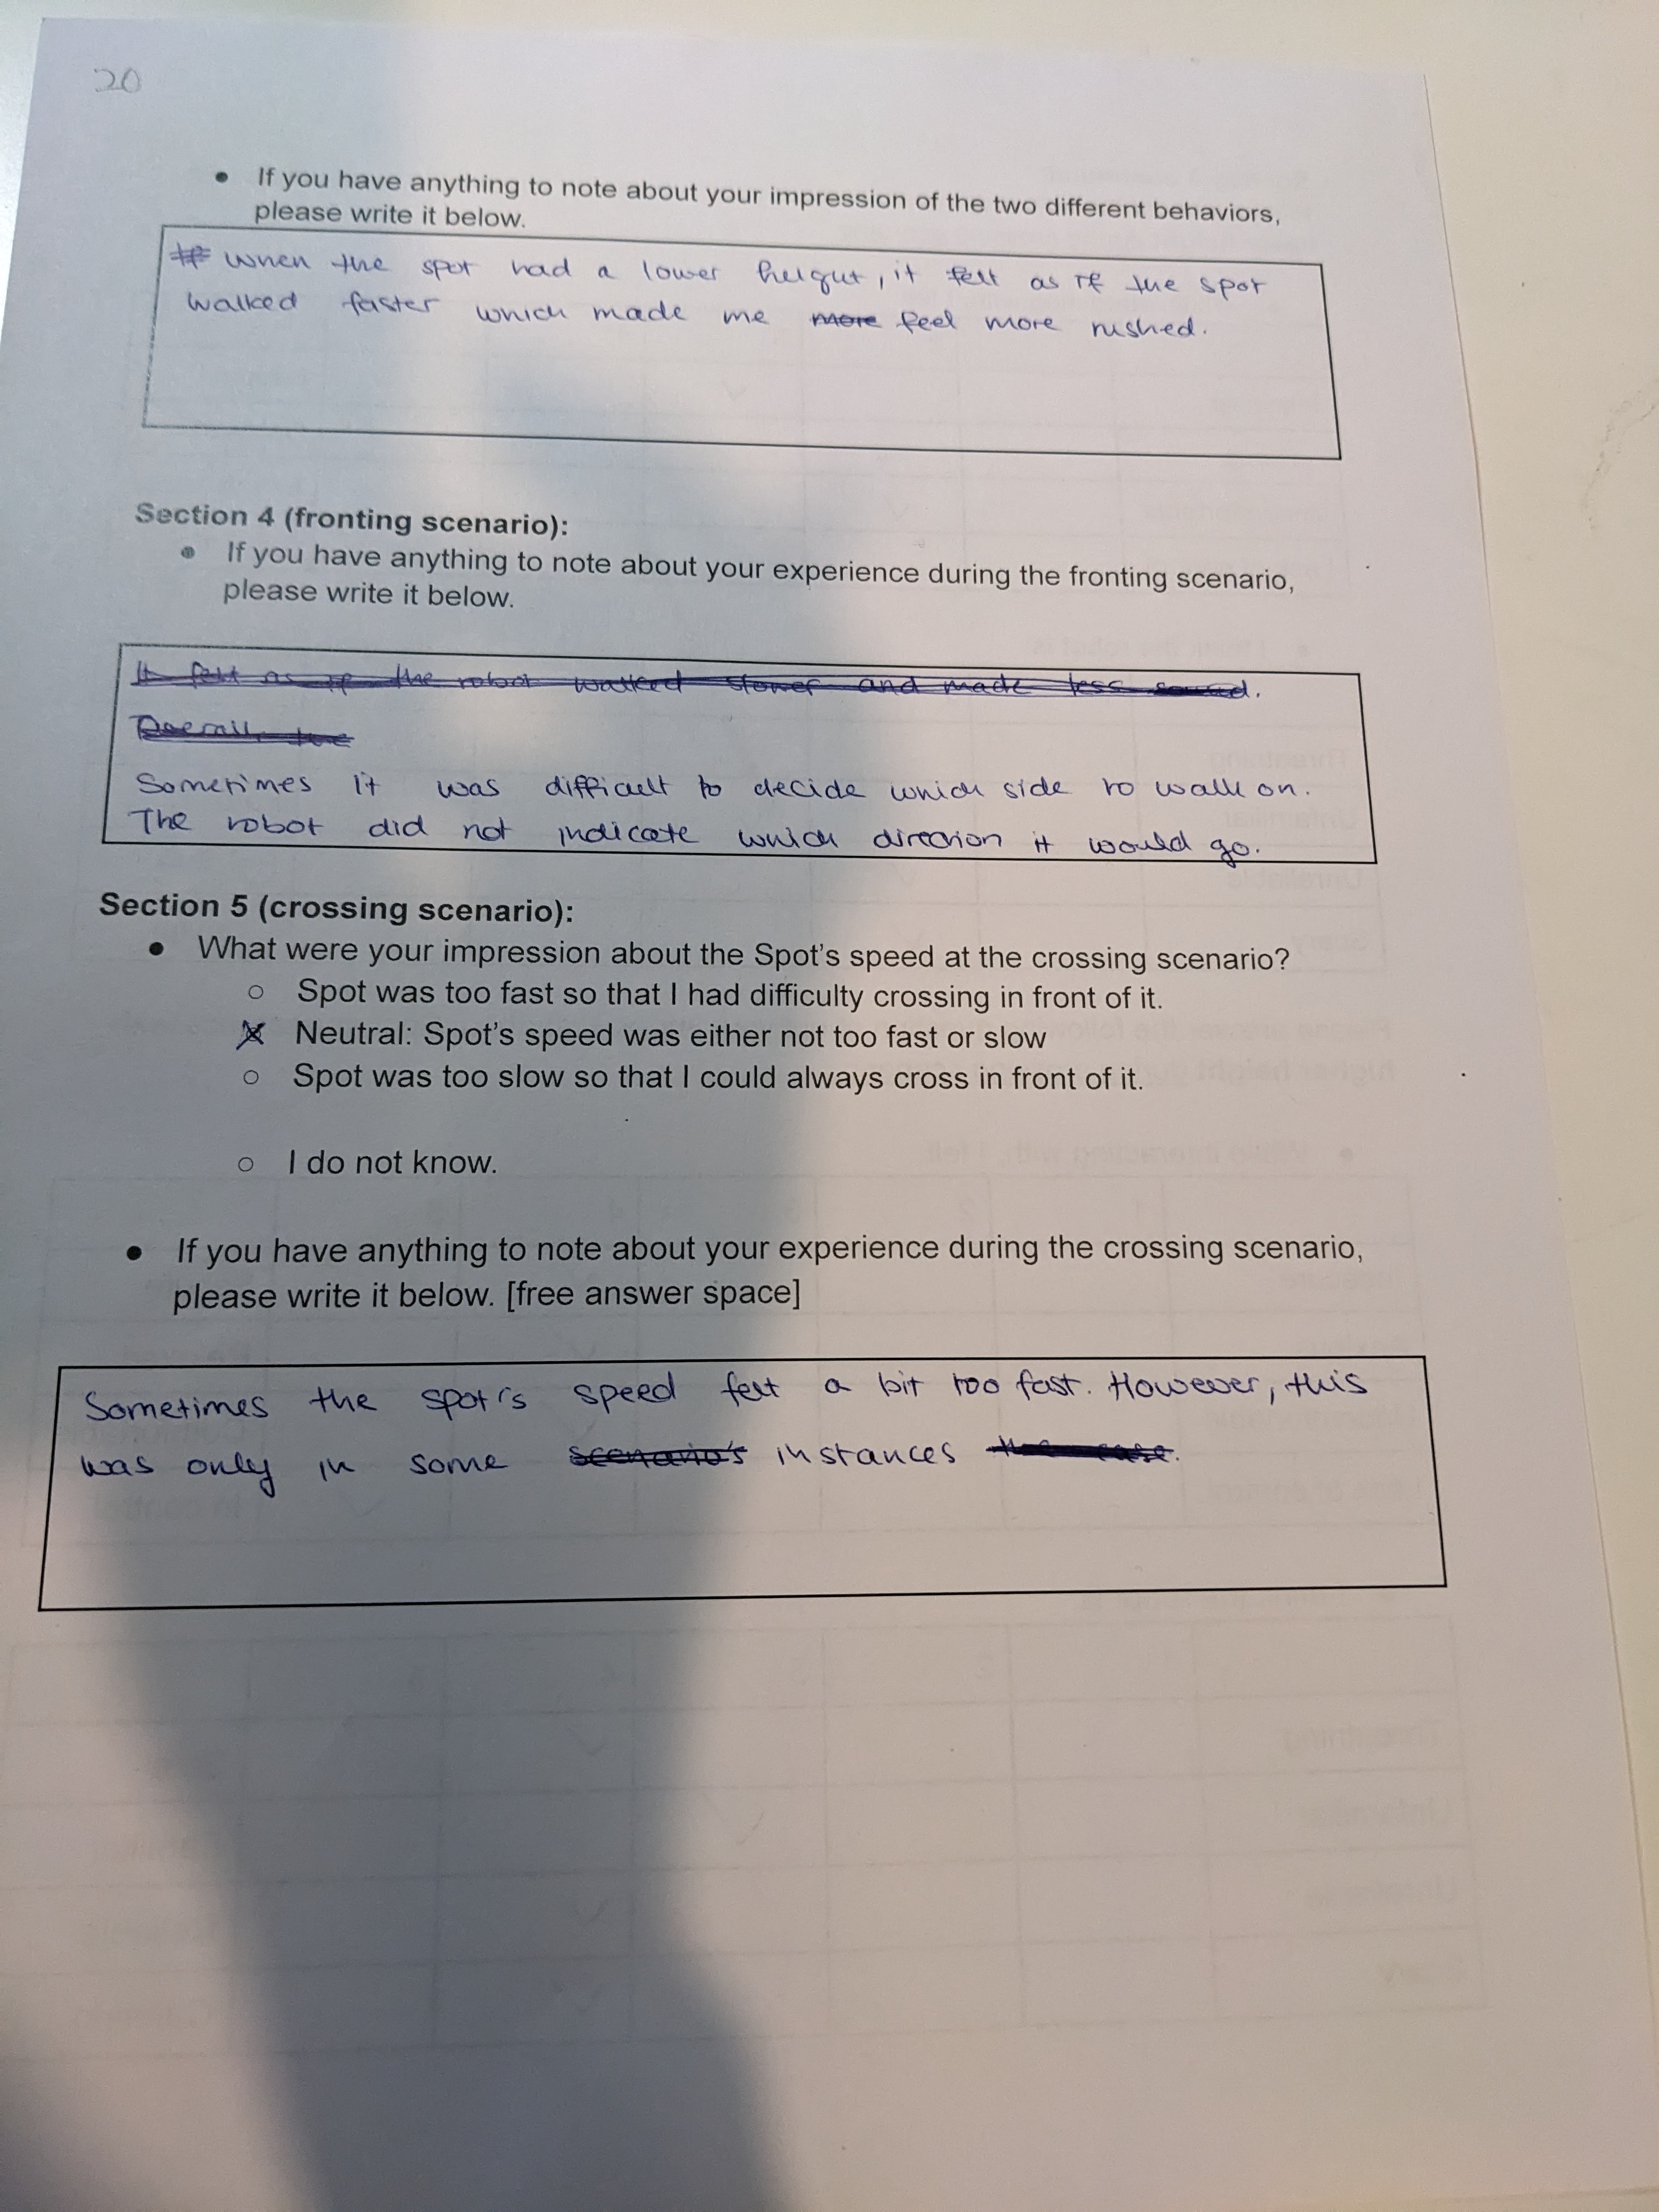 20
• If you have anything to note about your impression of the two different behaviors,
please write it below.
When the spot had a lower height, it felt as if the spot
walked faster which made me more feel more rushed.
Section 4 (fronting scenario):
• If you have anything to note about your experience during the fronting scenario,
please write it below.
It felt as if the robot walked slower and made less sound.
Overall, the
Sometimes it was difficult to decide which side to walk on.
The robot did not indicate which direction it would go.
Section 5 (crossing scenario):
• What were your impression about the Spot's speed at the crossing scenario?
○ Spot was too fast so that I had difficulty crossing in front of it.
X Neutral: Spot's speed was either not too fast or slow
○ Spot was too slow so that I could always cross in front of it.
○ I do not know.
• If you have anything to note about your experience during the crossing scenario,
please write it below. [free answer space]
Sometimes the spot's speed felt a bit too fast. However, this
was only in some scenario's instances the case.